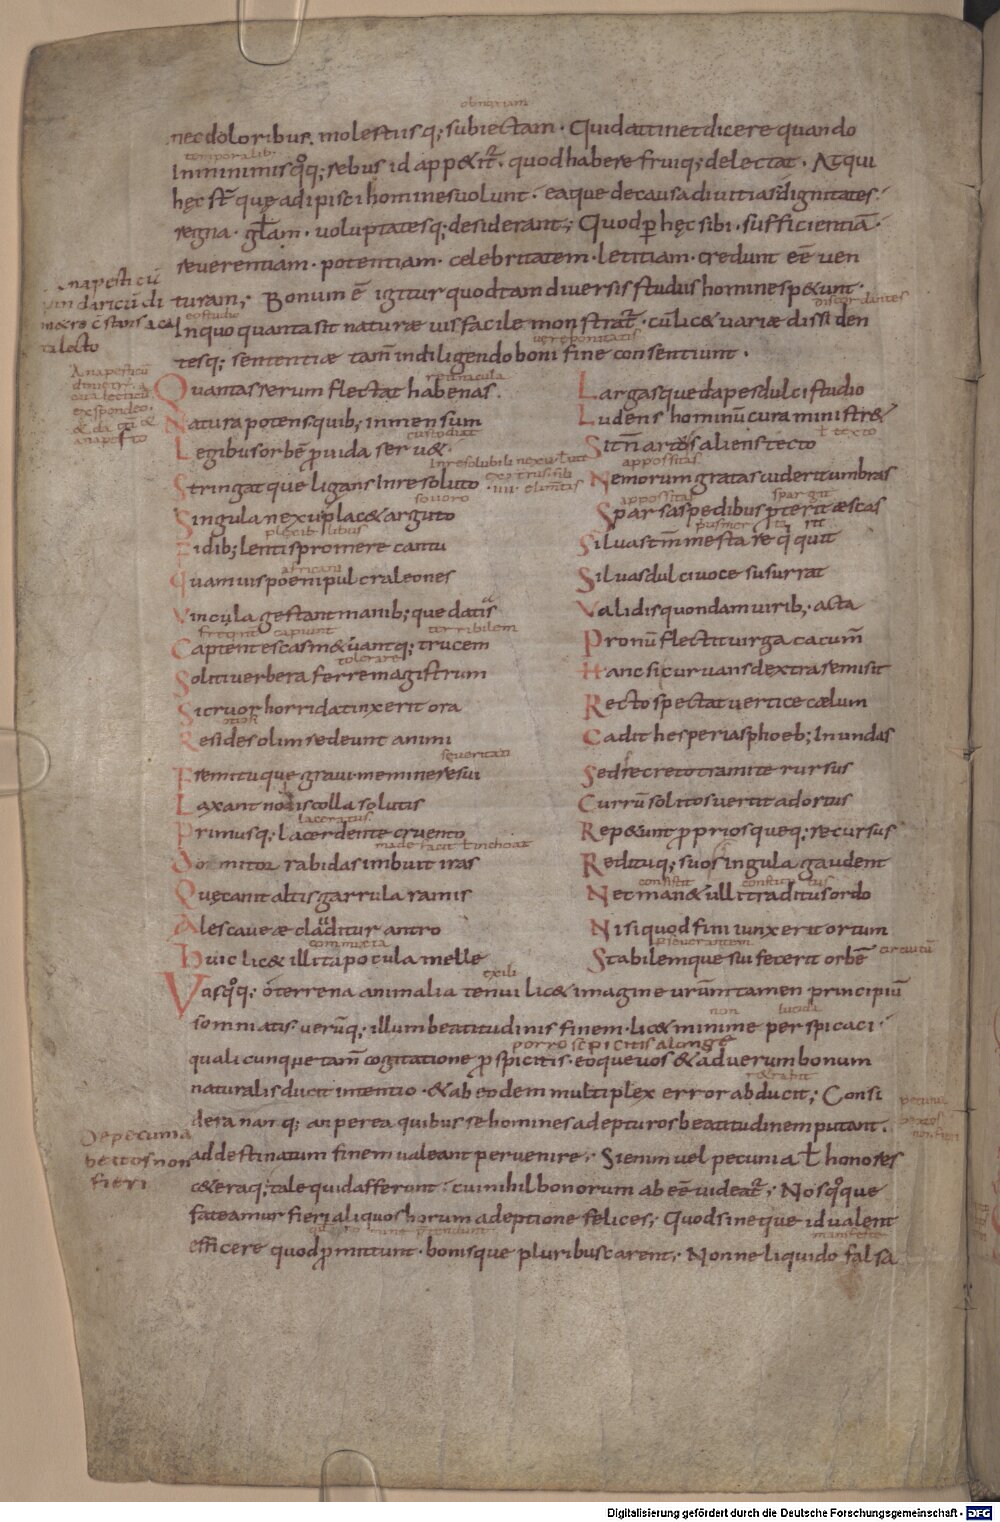 obnoxiam
nec doloribus. molestiisq; subiectam. Quid attinet dicere quando
temporalib;
In minimis qq; rebus id appetitur. quod habere fruiq; delectat. Atqui
hęc st̄ quę adipisci homines uolunt. eaque de causa diuitias dignitates.
regna. gl̄am. uoluptatesq; desiderant; Quod p̄ hęc sibi. sufficientiā.
reuerentiam. potentiam. celebritatem. letitiam. credunt eē uen
turam; Bonum ē igitur quod tam diuersis studiis homines petunt.
eo studio discordantes
In quo quanta sit naturæ uis facile monstrat̄. cū licet uariæ dissiden
tesq; sententiæ tam̄ in diligendo boni fine consentiunt.
Anapesticū
retinacula
Quantas rerum flectat habenas.
Natura potens quib; inmensum
custodiat
Legibus orbē prouida seruet.
Stringat que ligans Inresoluto
sonoro
Singula nexu placet arguto
Fidib; lentis promere cantu
africani
Quamuis poeni pulcra leones
Vincula gestant manib; que datis
capiunt terribilem
Captent escas metuantq; trucem
tolerare
Soliti uerbera ferre magistrum
Si cruor horrida tinxerit ora
otiosi
Resides olim redeunt animi
seueritati
Fremitu que graui meminere sui
Laxant nodis colla solutis
laceratus
Primusq; lacer dente cruento
madefacit ł inchoat
Domitor rabidas imbuit iras
Quę canit altis garrula ramis
Ales caueæ clauditur antro
commixta
Huic licet illita pocula melle
Largasque dapes dulci studio
Ludens hominū cura ministret
ł texto
Si tn̄ arto saliens tecto
Nemorum gratas uiderit umbras
spargit
Sparsas pedibus p̄terit æscas
Siluas tm̄ mesta requirit
Siluas dulci uoce susurrat
Validis quondam uirib; acta
Pronū flectit uirga cacum̄
Hanc si curuans dextra remisit
Recto spectat uertice cælum
Cadit hesperias phoeb; In undas
Sed secreto tramite rursus
Currū solitos uertit ad ortus
Repetunt proprios queq; recursus
Redituq; suo singula gaudent
consistit
Nec manet ulli traditus ordo
Nisi quod fini iunxerit ortum
circuitū
Stabilemque sui fecerit orbē
exili
Vos qq; o terrena animalia tenui licet imagine urūm tamen principiū
non lucida
somniatis uerūq; illum beatitudinis finem. licet minime perspicaci.
porro spicitis a longe
qualicunque tam̄ cogitatione prospicitis. eoque uos & ad uerum bonum
naturalis ducit intentio. & ab eodem multiplex error abducit; Consi
dera namq; an per ea quibus se homines adepturos beatitudinem putant.
De pecunia
beatos non
fieri
ad destinatum finem ualeant peruenire; Si enim uel pecunia ł honores
ceteraq; tale quid afferunt. cui nihil bonorum abeē uideat̄; Nos qq que
fateamur fieri aliquos horum adeptione felices; Quod si neque id ualent
manifeste
efficere quod p̄mittunt. bonisque pluribus carent; Nonne liquido falsa
Digitalisierung gefördert durch die Deutsche Forschungsgemeinschaft - DFG